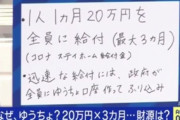 ・1人1カ月20万円を
全員に給付(最大3カ月)
(コロナ ステイホーム給付金)
・迅速な給付には、政府が
全員にゆうちょ口座作ってふり込み
なぜ、ゆうちょ?20万円×3カ月…財源は?